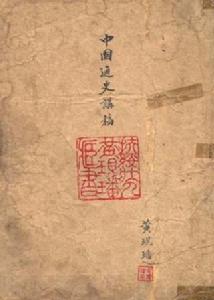 中国通史講稿
黄現璠